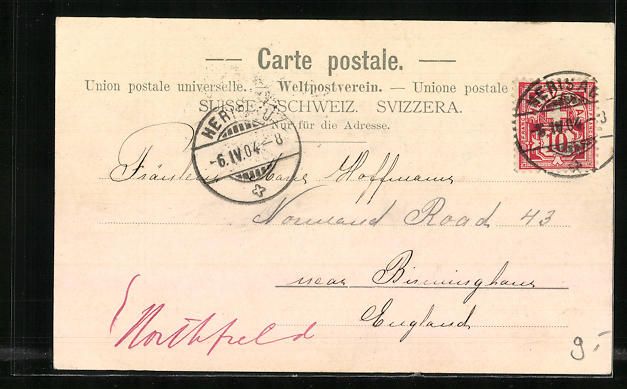 — Carte postale. —
Union postale universelle. — Weltpostverein. — Unione postale
SUISSE. SCHWEIZ. SVIZZERA.
Nur für die Adresse.
HERISAU
-6.IV.04-8
HERISAU
-6.IV.04
10
Fräulein Hoffmann
Normand Road 43
near Birmingham
England
Northfield
9.-